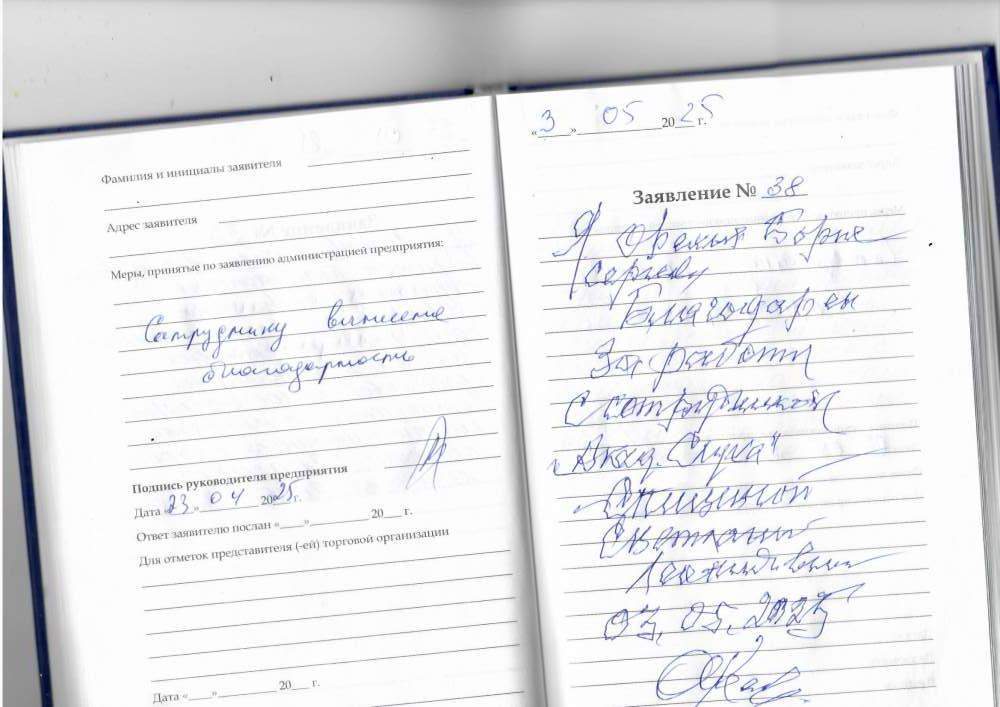 Фамилия и инициалы заявителя
Адрес заявителя
Меры, принятые по заявлению администрацией предприятия:
Сотруднику вынесена
благодарность
Подпись руководителя предприятия
Дата «23» 04 2025г.
Ответ заявителю послан «____»__________ 20___ г.
Для отметок представителя (-ей) торговой организации
Дата «____»__________ 20___ г.
«3» 05 2025 г.
Заявление № 38
Я
Благодарен
За работу
с сотрудником
"Акад. Слуха"
Светланой
03.05.2025